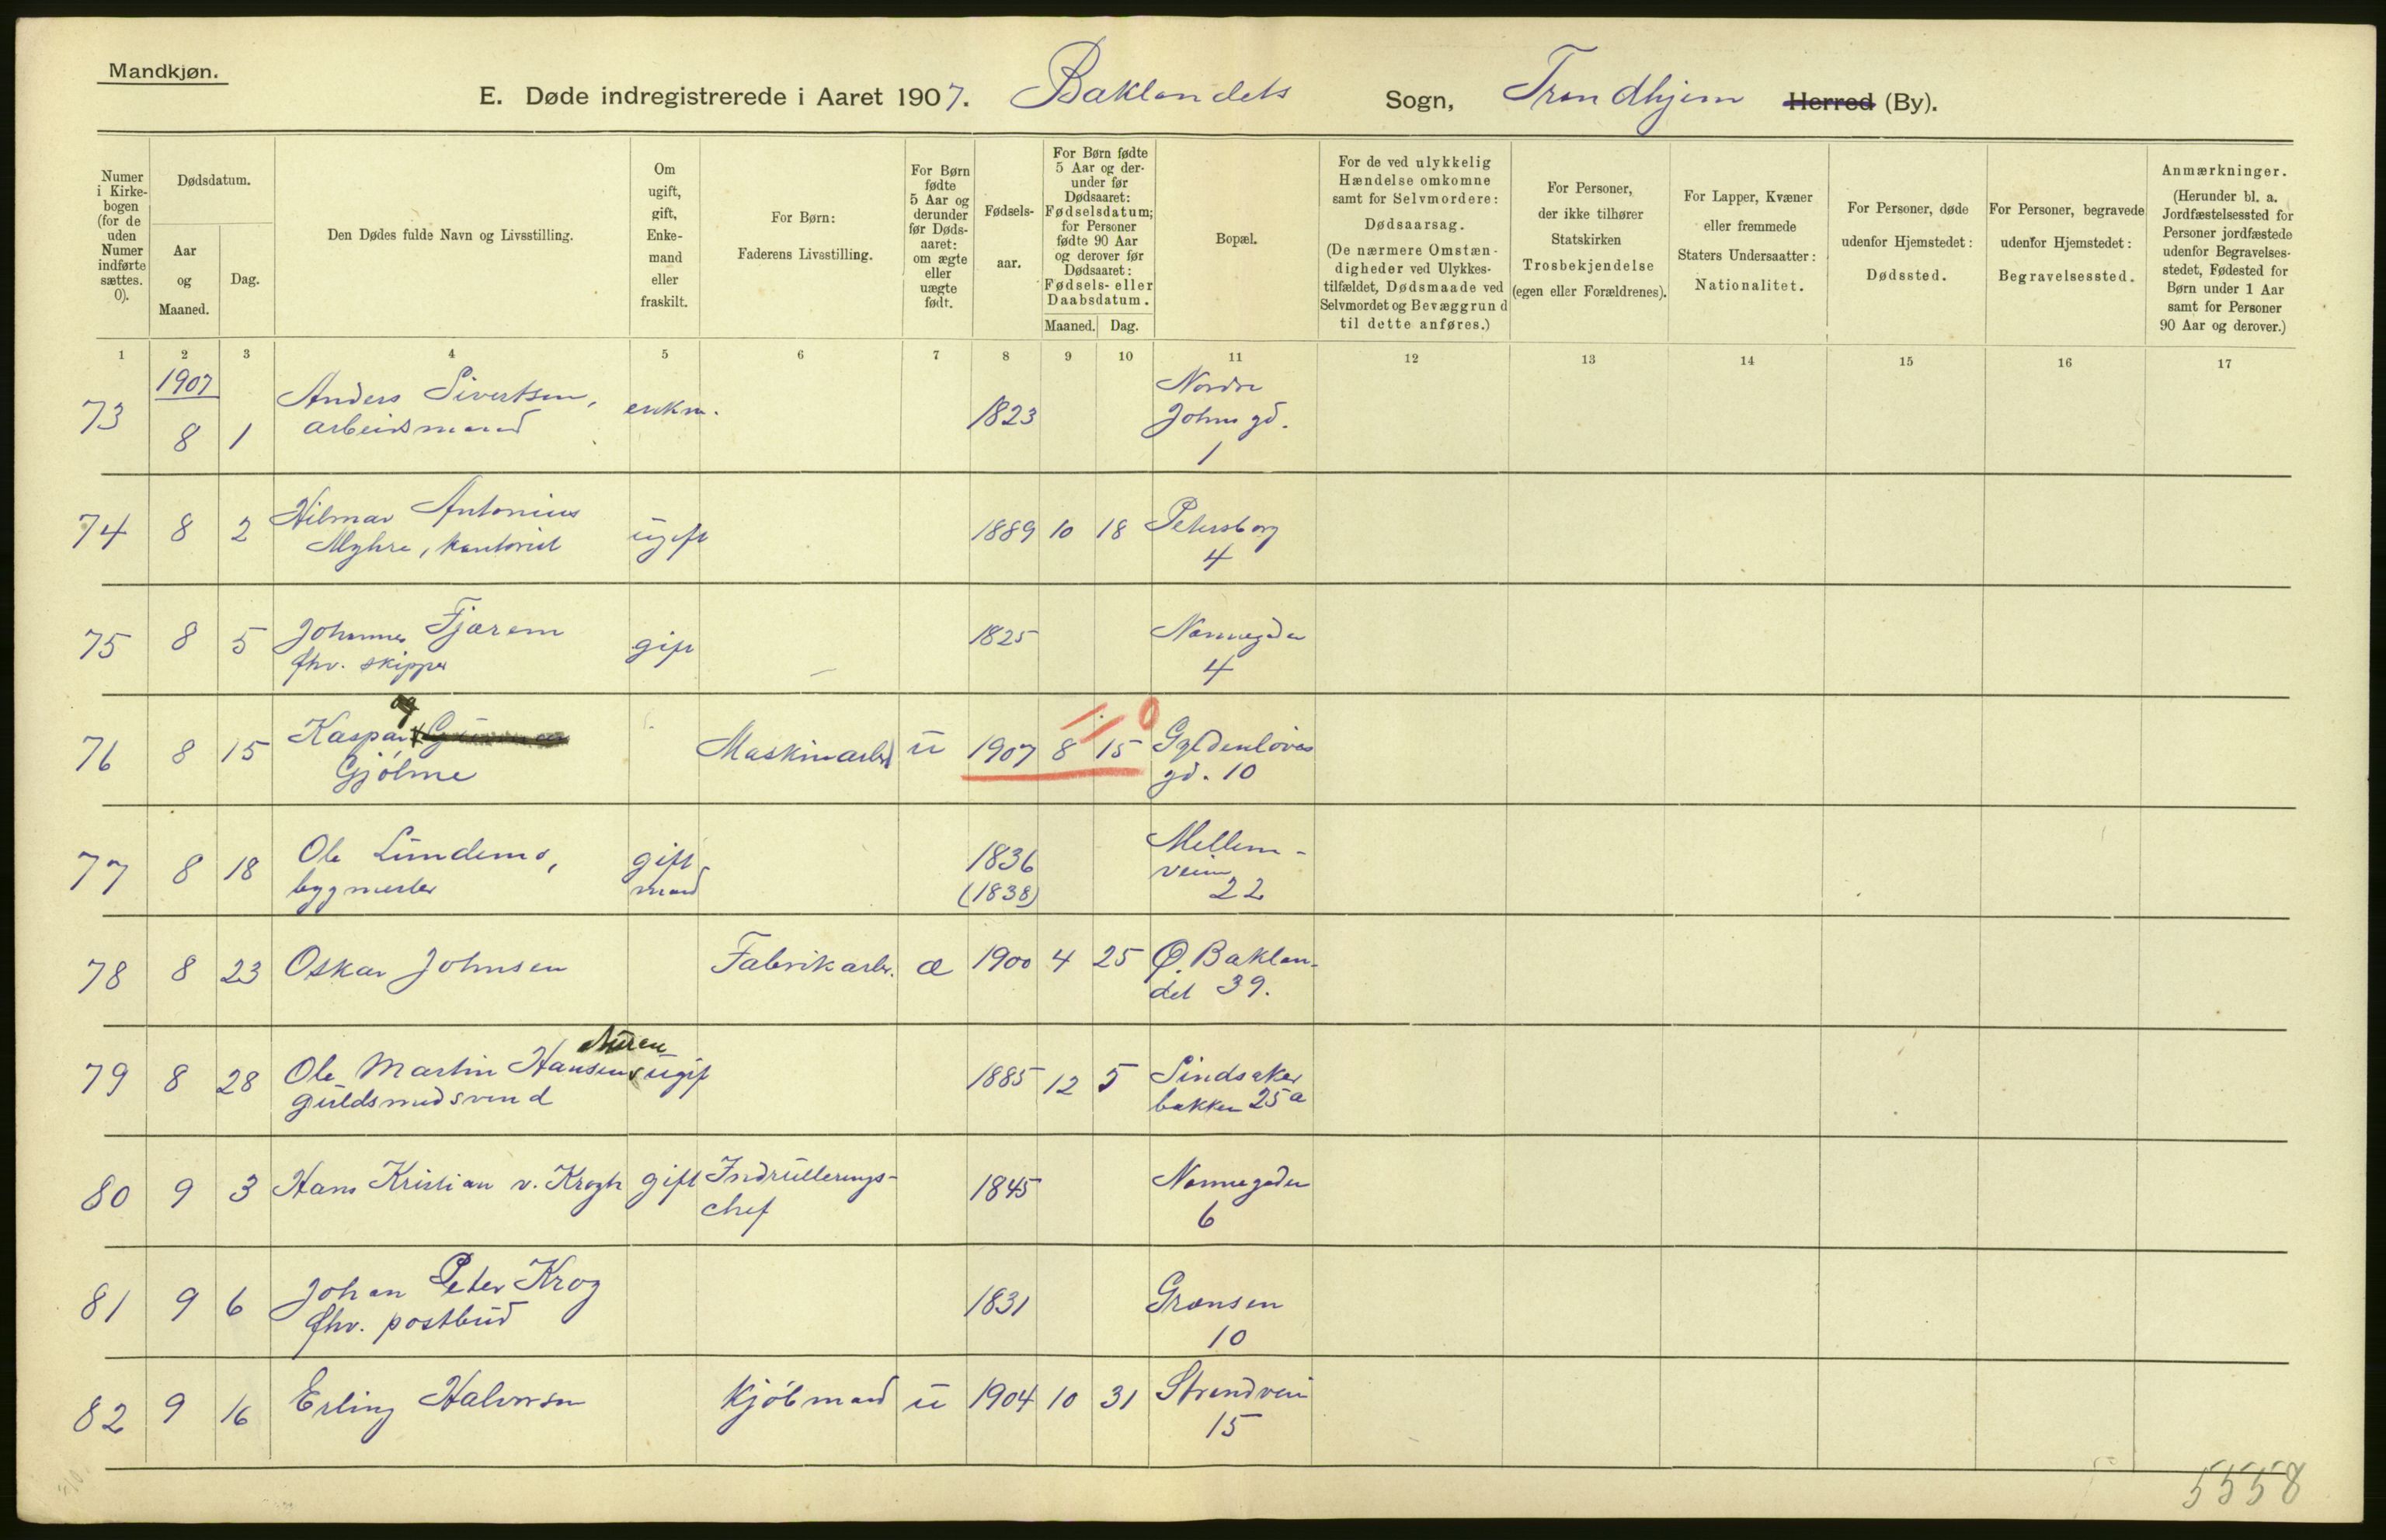 Mandkjøn.
E. Døde indregistrerede i Aaret 1907. Baklandets Sogn, Trondhjem Herred (By).
Numer i Kirkebogen (for de uden Numer indførte sættes. 0).
Dødsdatum.
Aar og Maaned.
Dag.
Den Dødes fulde Navn og Livsstilling.
Om ugift, gift, Enkemand eller fraskilt.
For Børn: Faderens Livsstilling.
For Børn fødte 5 Aar og derunder før Dødsaaret: om ægte eller uægte født.
Fødselsaar.
For Børn fødte 5 Aar og derunder før Dødsaaret: Fødselsdatum; for Personer fødte 90 Aar og derover før Dødsaaret: Fødsels- eller Daabsdatum.
Maaned. Dag.
Bopæl.
For de ved ulykkelig Hændelse omkomne samt for Selvmordere: Dødsaarsag. (De nærmere Omstændigheder ved Ulykkestilfældet, Dødsmaade ved Selvmordet og Bevæggrund til dette anføres.)
For Personer, der ikke tilhører Statskirken Trosbekjendelse (egen eller Forældrenes).
For Lapper, Kvæner eller fremmede Staters Undersaatter: Nationalitet.
For Personer, døde udenfor Hjemstedet: Dødssted.
For Personer, begravede udenfor Hjemstedet: Begravelsessted.
Anmærkninger. (Herunder bl. a. Jordfæstelsessted for Personer jordfæstede udenfor Begravelsesstedet, Fødested for Børn under 1 Aar samt for Personer 90 Aar og derover.)
1 2 3 4 5 6 7 8 9 10 11 12 13 14 15 16 17
1907
73 8 1 Anders Sivertsen, enkm. 1823 Nordre
arbeidsmand Johns gd.
1
74 8 2 Hilmar Antonius ugift 1889 10 18 Petersborg
Myhre, kontorist 4
75 8 5 Johannes Fjærem gift 1825 Nonnegaden
fhv. skipper 4
og
76 8 15 Kaspar Maskinarbd u 1907 8 15 Gyldenløves
Gjølme gd. 10
1. 0
77 8 18 Ole Lundemo, gift 1836 Mellem-
bygmester mand (1838) veien
22
78 8 23 Oskar Johnsen Fabrikarb. æ 1900 4 25 Ø. Baklan-
det 39.
79 8 28 Ole Martin Hansen ugif 1885 12 5 Sindsaker
guldsmedsvend bakken 25a
80 9 3 Hans Kristian v. Krogh gift Indrullerings- 1845 Nonnegaden
chef 6
81 9 6 Johan Peter Krog 1831 Grænsen
fhv. postbud 10
82 9 16 Erling Halvorsen Kjøbmand u 1904 10 31 Strandvei
15
5558